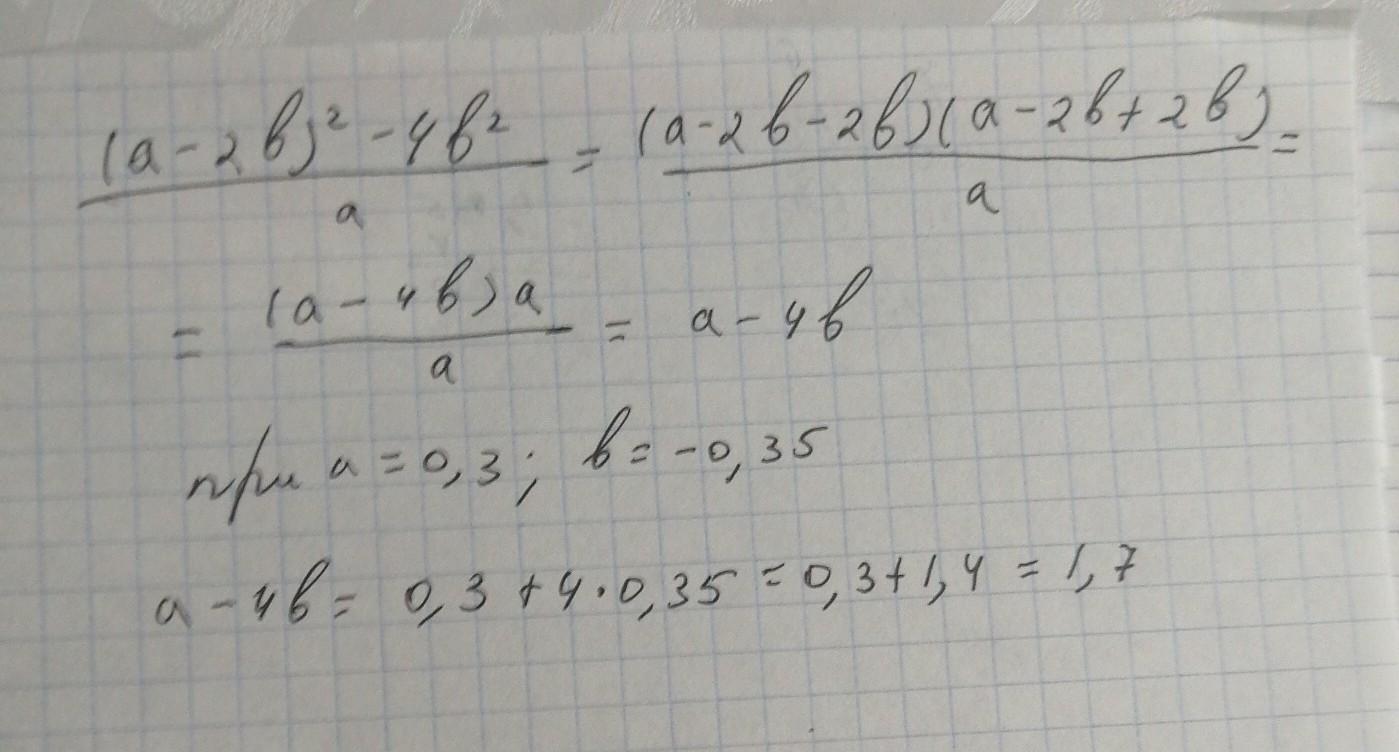 (a-2b)²-4b²/a = (a-2b-2b)(a-2b+2b)/a =
= (a-4b)a/a = a-4b
при a=0,3; b=-0,35
a-4b= 0,3+4·0,35=0,3+1,4=1,7